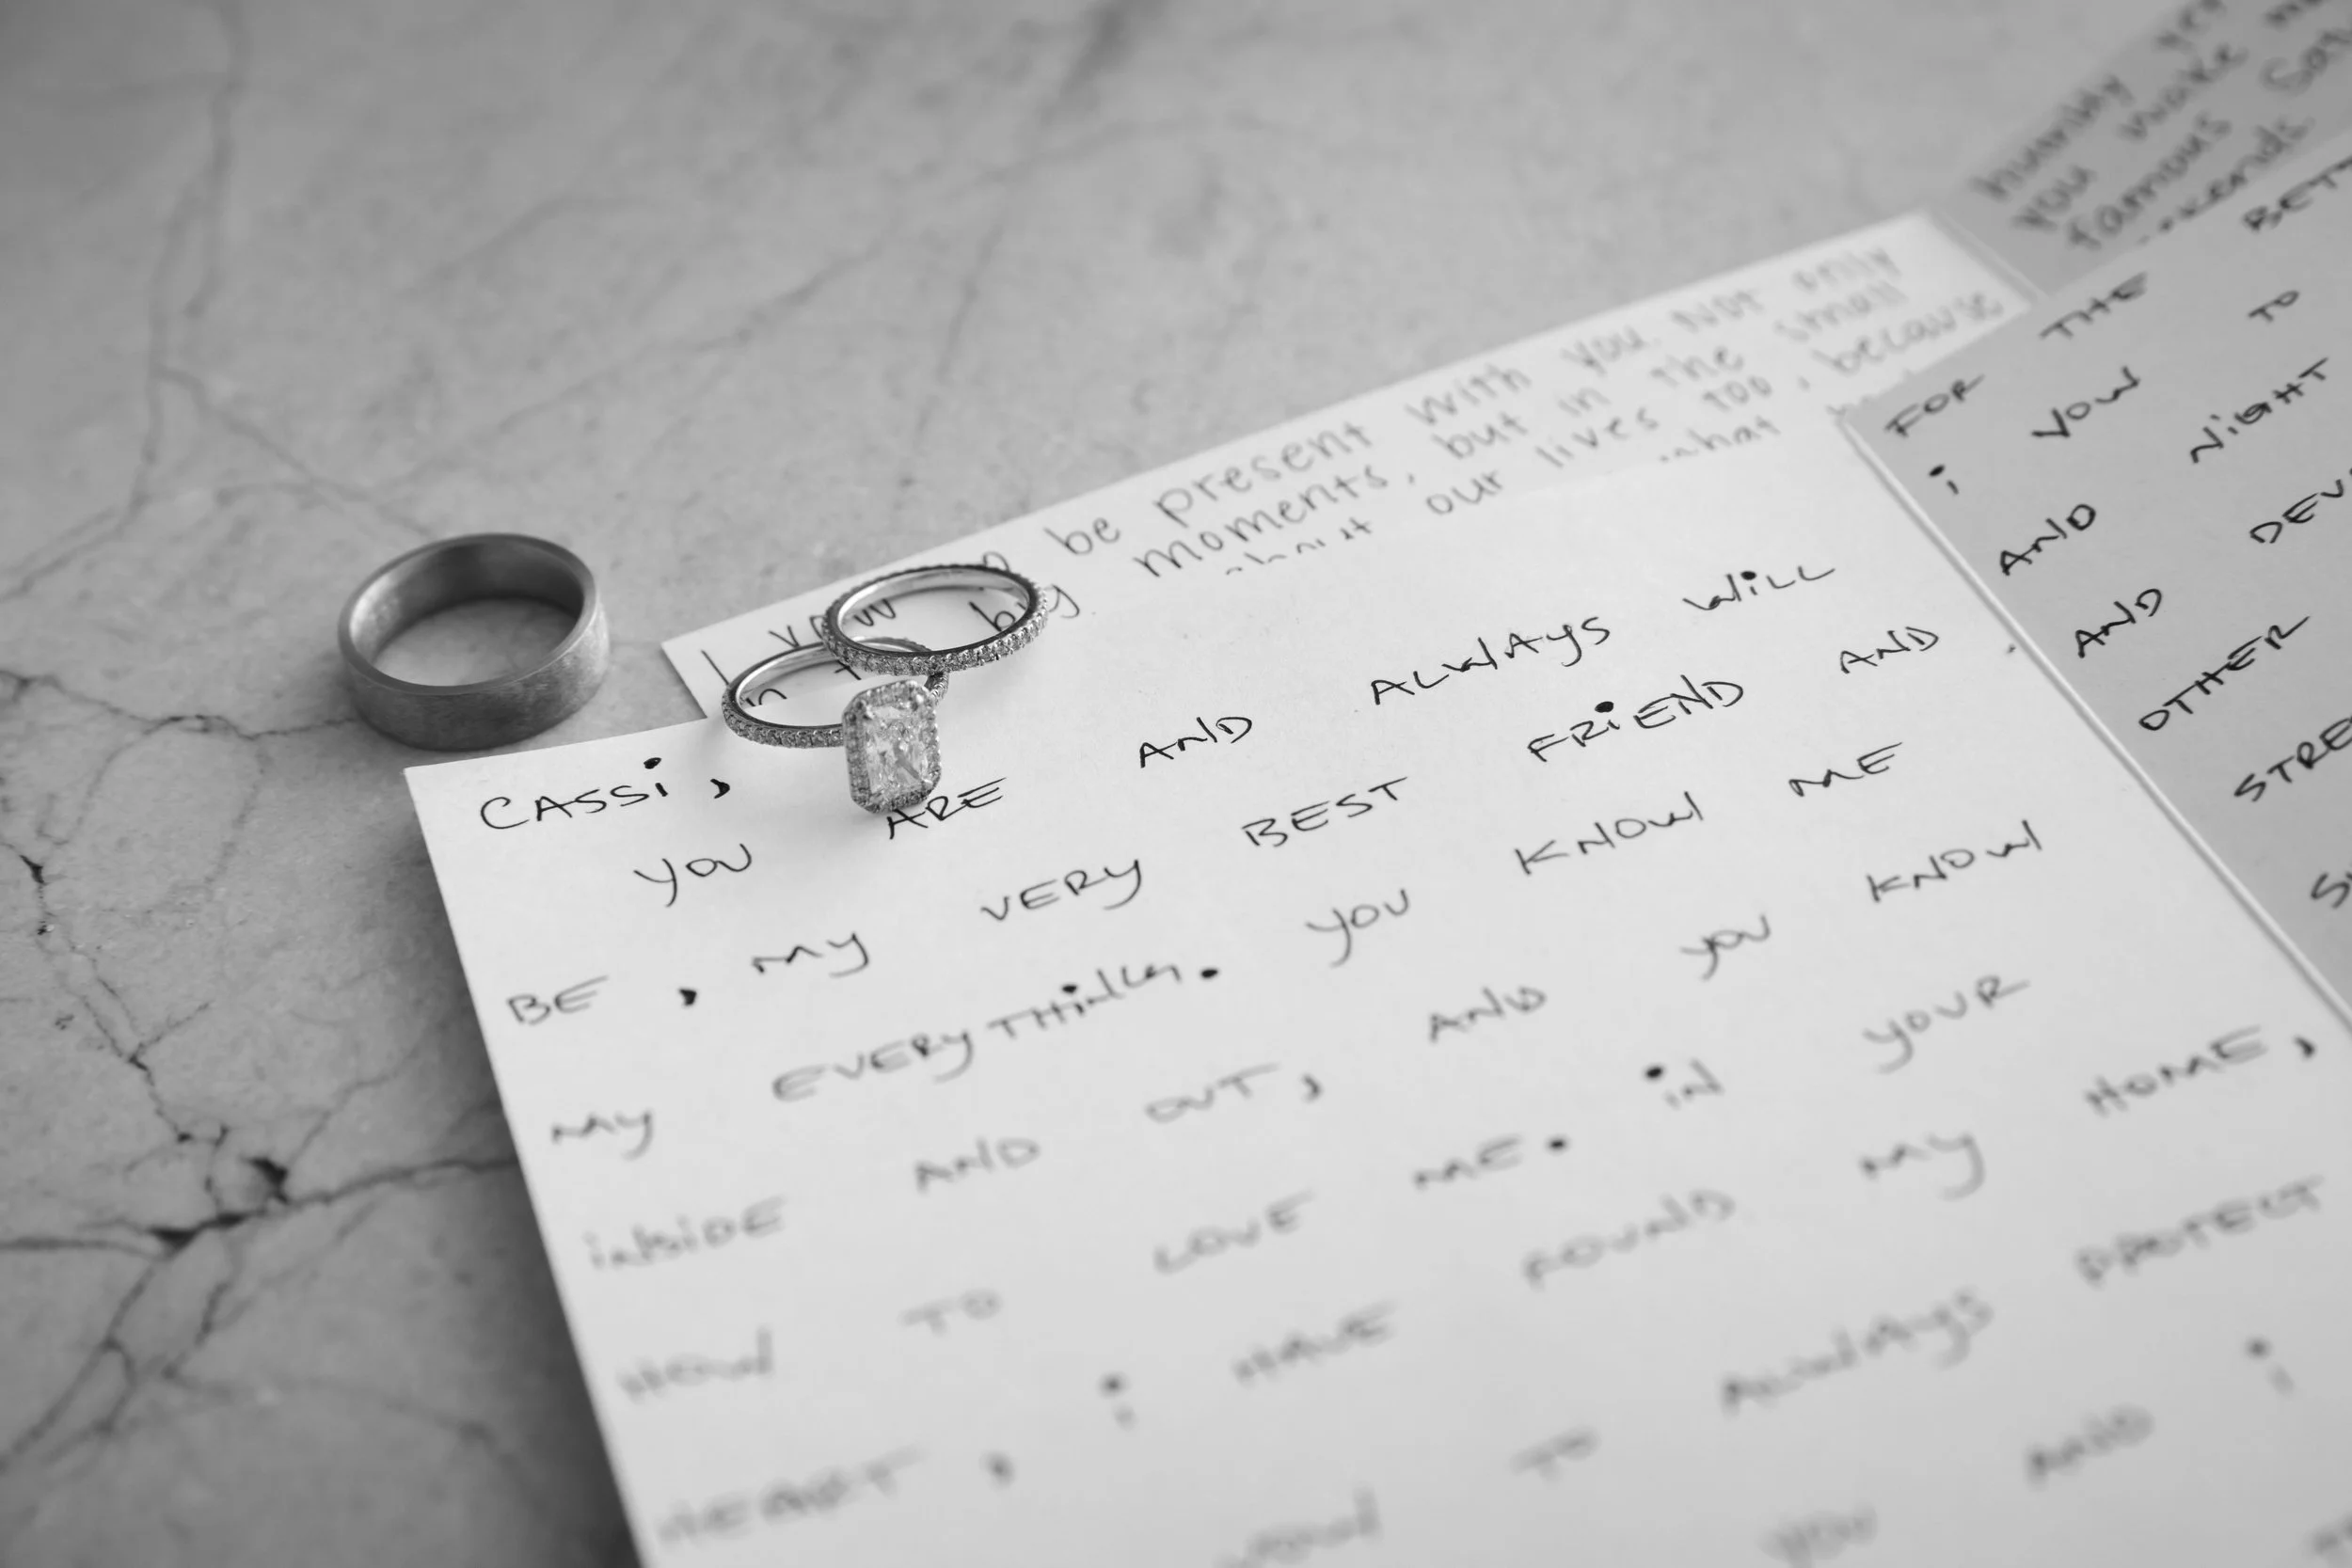 CASSi,
YOU ARE AND ALWAYS WiLL
BE, MY VERY BEST FRiEND AND
MY EVERYTHiNG. YOU KNOW ME
iNSiDE AND OUT, AND YOU KNOW
HOW TO LOVE ME. iN YOUR
HEART, i HAVE FOUND MY HOME,
VOW TO ALWAYS PROTECT
YOU AND i
I vow to be present with you. Not only
in the big moments, but in the small
our lives too, because
what
FOR THE BETT
i VOW TO
AND NiGHT
AND DEV
OTHER
STRE
humbly
you make
famous